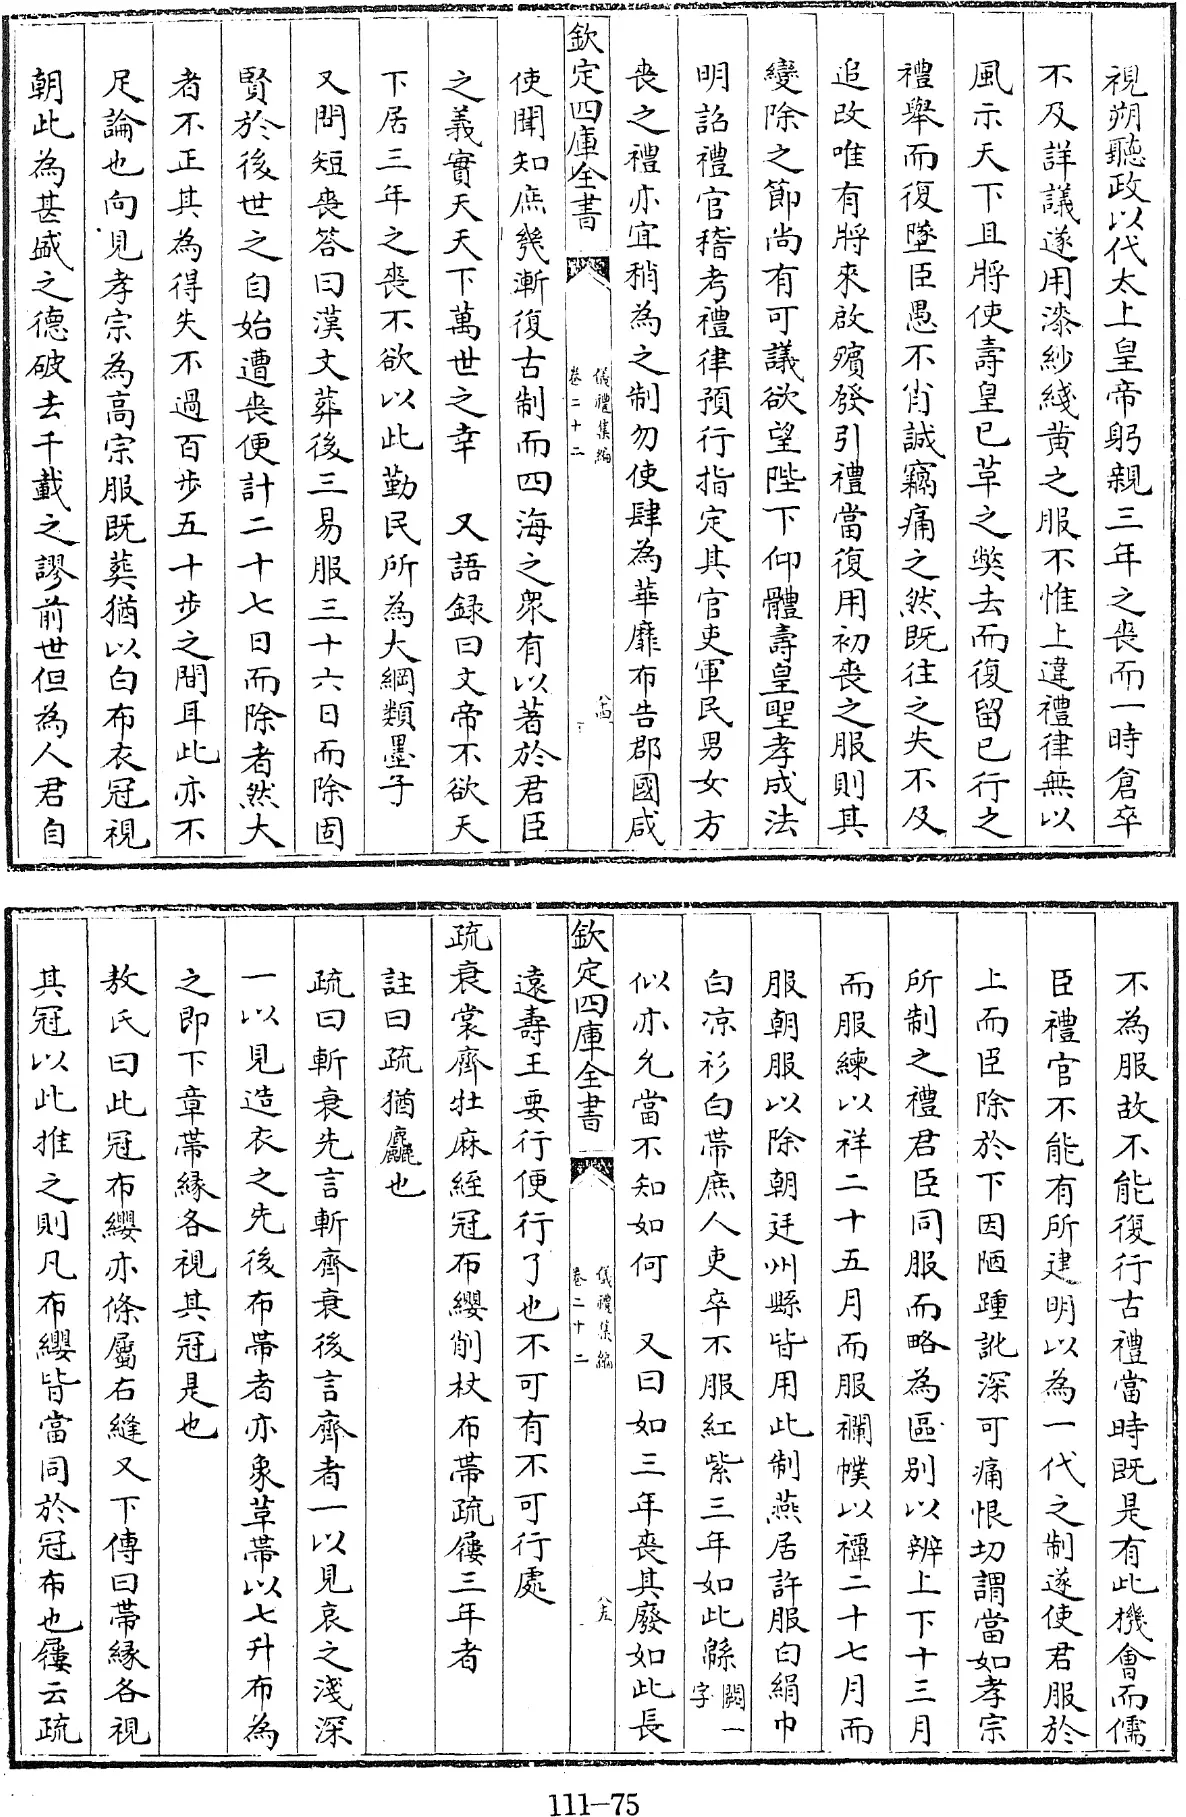 視朔聽政以代太上皇帝躬親三年之喪而一時倉卒
不及詳議遂用漆紗綫黄之服不惟上違禮律無以
風示天下且將使壽皇已革之獘去而復留已行之
禮舉而復墜臣愚不肖誠竊痛之然既往之失不及
追改唯有將來啟殯發引禮當復用初喪之服則其
變除之節尚有可議欲望陛下仰體壽皇聖孝成法
明詔禮官稽考禮律預行指定其官吏軍民男女方
喪之禮亦宜稍為之制勿使肆為華靡布告郡國咸
欽定四庫全書
儀禮集編
卷二十二
八十四
使聞知庶幾漸復古制而四海之衆有以著於君臣
之義實天天下萬世之幸 又語録曰文帝不欲天
下居三年之喪不欲以此勤民所為大綱類墨子
又問短喪答曰漢文葬後三易服三十六日而除固
賢於後世之自始遭喪便計二十七日而除者然大
者不正其為得失不過百步五十步之間耳此亦不
足論也向見孝宗為高宗服既葬猶以白布衣冠視
朝此為甚盛之德破去千載之謬前世但為人君自
不為服故不能復行古禮當時既是有此機會而儒
臣禮官不能有所建明以為一代之制遂使君服於
上而臣除於下因陋踵訛深可痛恨切謂當如孝宗
所制之禮君臣同服而略為區别以辨上下十三月
而服練以祥二十五月而服襴幞以禫二十七月而
服朝服以除朝廷州縣皆用此制燕居許服白絹巾
白凉衫白帶庶人吏卒不服紅紫三年如此緜闕一字
似亦允當不知如何 又曰如三年喪其廢如此長
欽定四庫全書
儀禮集編
卷二十二
八十五
遠壽王要行便行了也不可有不可行處
疏衰裳齊牡麻絰冠布纓削杖布帶疏屨三年者
註曰疏猶麤也
疏曰斬衰先言斬齊衰後言齊者一以見哀之淺深
一以見造衣之先後布帶者亦象革帶以七升布為
之即下章帶緣各視其冠是也
敖氏曰此冠布纓亦條屬右縫又下傳曰帶緣各視
其冠以此推之則凡布纓皆當同於冠布也屨云疏
111-75